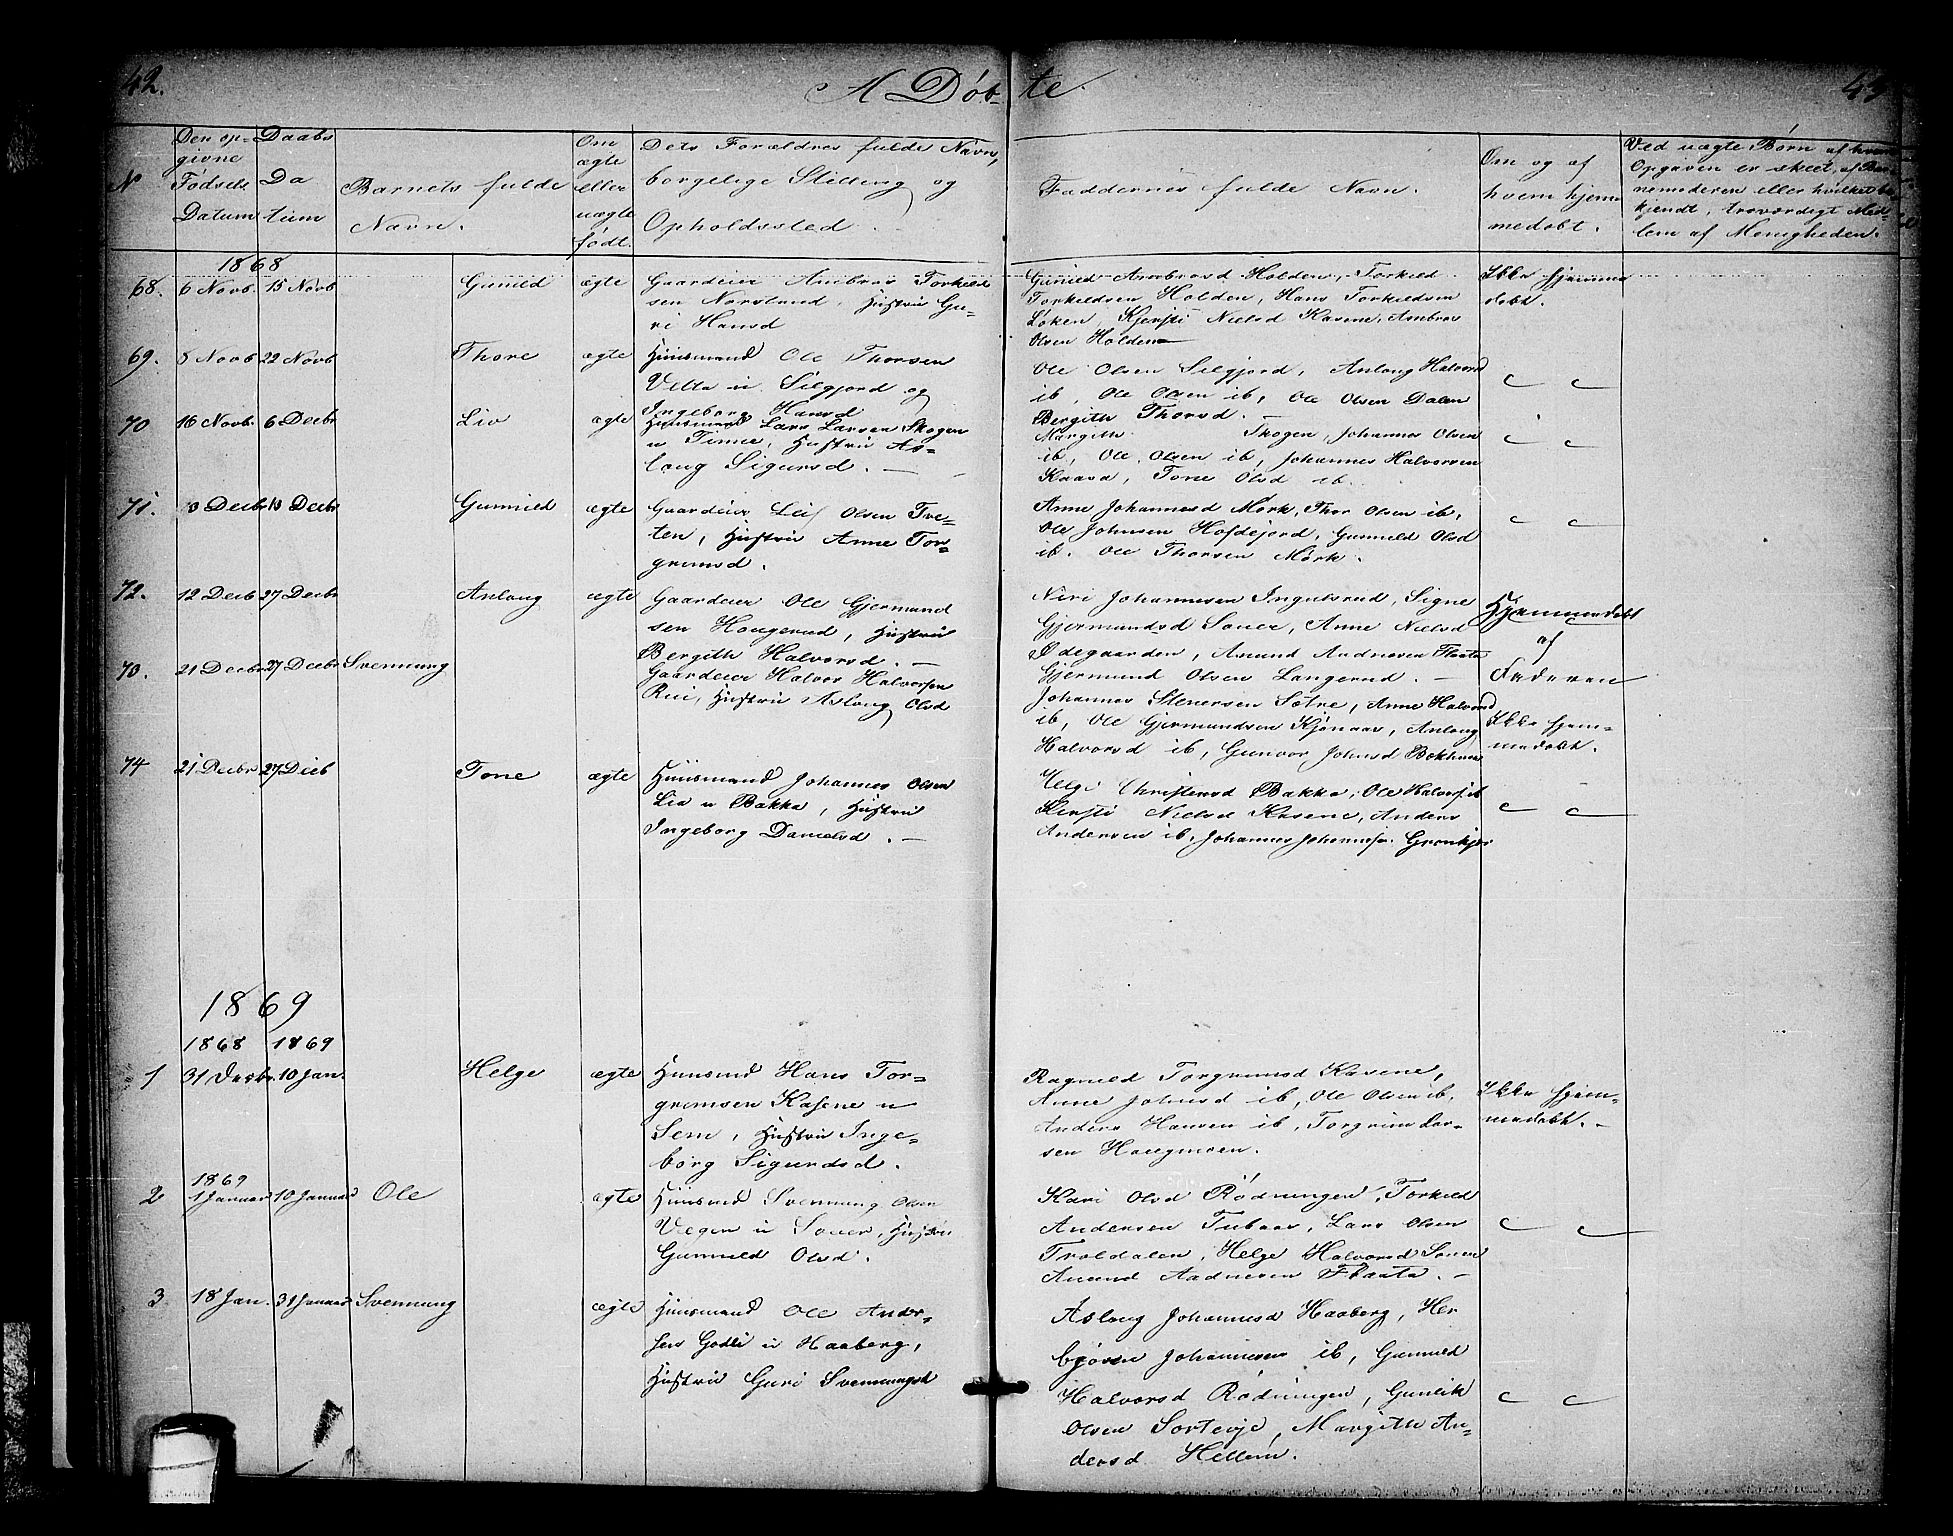 42.
A Døb-
te.
43
N
Den op-
givne
Fødsels
Datum
Daabs
Da
tum
Barnets fulde
Navn.
Om
ægte
eller
uægte
født.
Dets Forældres fulde Navn,
borgelige Stilling og
Opholdssted.
Faddernes fulde Navn.
Om og af
hvem hjem
medøbt.
Ved uægte Børn af hvem
Opgaven er skeet, af Bar-
nemoderen eller hvilket be-
kjendt, troværdigt Med-
lem af Menigheden.
1868
68. 6 Novb. 15 Novb Gunild ægte
Gaardeier Ambros Torkild
sen Norsland, Hustru Gu-
ri Hansd
Gunild Ambrosd Holden, Torkild
Torkildsen Holden, Hans Torkildsen
Løken Kjersti Nielsd Kasene, Ambros
Olsen Holden
Ikke hjemme
døbt.
69. 8 Novb 22 Novb Thore ægte
Huusmand Ole Thorsen
Velta u. Silgjord og
Ingeborg Hansd
Ole Olsen Silgjord, Anlaug Halvorsd
ib, Ole Olsen ib, Ole Olsen Dalen
Bergith Thorsd. —
c c
70 16 Novb. 6 Decbr Liv ægte
Huusmand Lars Larsen Skogen
u Tinne, Hustru As-
laug Sigursd. —
Margith Skogen, Johannes Olsen
ib, Ole Olsen ib, Johannes Halvorsen
Kaasa, Tone Olsd ib.
c c
71. 3 Decbr 13 Decbr Gunnild ægte
Gaardeier Leif Olsen Tve-
ten, Hustru Anne Tor-
grimsd.
Anne Johannesd Mørk, Thor Olsen ib,
Ole Johnsen Hofdejord, Gunnild Olsd
ib. Ole Thorsen Mørk.
c c
72. 12 Decb 27 Decbr Anlaug ægte
Gaardeier Ole Gjermund
sen Haugerud, Hustru
Bergith Halvorsd. —
Niri Johannesen Ingulsrud, Signe
Gjermundsd Sauer, Anne Nielsd
Ødegaarden, Amund Andriesen Flaata
Gjermund Olsen Langerud. —
Hjemmedøbt
af
Faderen
70. 21 Decbr 27 Decbr Svennung
Gaardeier Halvor Halvorsen
Rui, Hustru Aslaug Olsd
Johannes Stenersen Sotre, Anne Halvorsd
ib, Ole Gjermundsen Kjønaas, Anlaug
Halvorsd ib, Gunvor Johnsd Bakhuus
Ikke hjem-
medøbt.
74 21 Decbr 27 Decb Tone ægte
Huusmand Johannes Olsen
Lia u Bakka, Hustru
Ingeborg Danielsd. —
Helge Christensd Bakka, Ole Halvors ib
Kersti Nielsd Kasene, Anders
Andersen ib, Johannes Johannesen Grønkjær
c c
1869
1868 1869
1 31 Decbr. 10 Jan. Helge ægte
Huusmd Hans Tor-
grimsen Kasene u
Sem, Hustru Inge-
borg Sigurdsd.
Ragnild Torgrimsd Kasene,
Anne Johnsd ib, Ole Olsen ib,
Anders Hansen ib, Torgrim Lar-
sen Haugmoen.
Ikke hjem-
medøbt. —
1869
2 1 Januar 10 Januar Ole ægte
Huusmd Svennung Olsen
Vegen u Sauer, Hustru
Gunnild Olsd.
Kari Olsd Rødningen, Torkild
Andersen Tubaas, Lars Olsen
Troldalen, Helge Halvorsd Sauer
Amund Aadnesen Flaata. —
c c
3 18 Jan. 31 Januar Svennung ægte
Huusmand Ole Ander-
sen Godli u Haaberg,
Hustru Guri Svennungsd
Aslaug Johannesd Haaberg, Her
bjørn Johannesen ib, Gunnild
Halvorsd Rødningen, Gunlik
Olsen Sorteoje, Margith An-
dersd Hellem.
c c